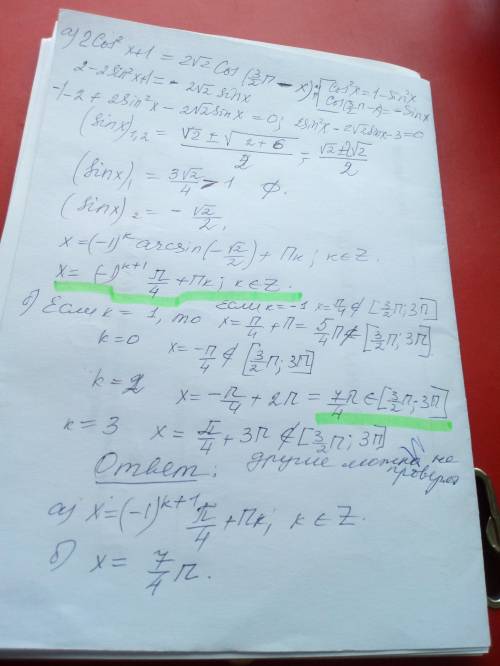 а) 2Cos²x+1 = 2√2 Cos(3/2π - x); [Cos²x = 1 - Sin²x
Cos(3/2π - x) = - Sinx
2 - 2Sin²x+1 = - 2√2 Sinx
-1-2 + 2Sin²x - 2√2 Sinx = 0; 2Sin²x - 2√2 Sinx - 3 = 0
(Sinx)₁,₂ = (√2 ± √(2+6))/2 = (√2 ± 2√2)/2
(Sinx)₁ = 3√2/4 > 1 ∅.
(Sinx)₂ = - √2/2,
x = (-1)ᵏ arcsin(-√2/2) + πk; k∈Z.
x = (-1)ᵏ⁺¹ π/4 + πk; k∈Z.
б) Если k = 1, то x = π/4 + π = 5/4π ∉ [3/2π; 3π]
Если k = -1 x = π/4 ∉ [3/2π; 3π]
k=0 x = -π/4 ∉ [3/2π; 3π]
k = 2 x = -π/4 + 2π = 7/4π ∈ [3/2π; 3π]
k = 3 x = π/4 + 3π ∉ [3/2π; 3π]
Ответ: другие можна не
проверя
а) x = (-1)ᵏ⁺¹ π/4 + πk; k∈Z.
б) x = 7/4 π.